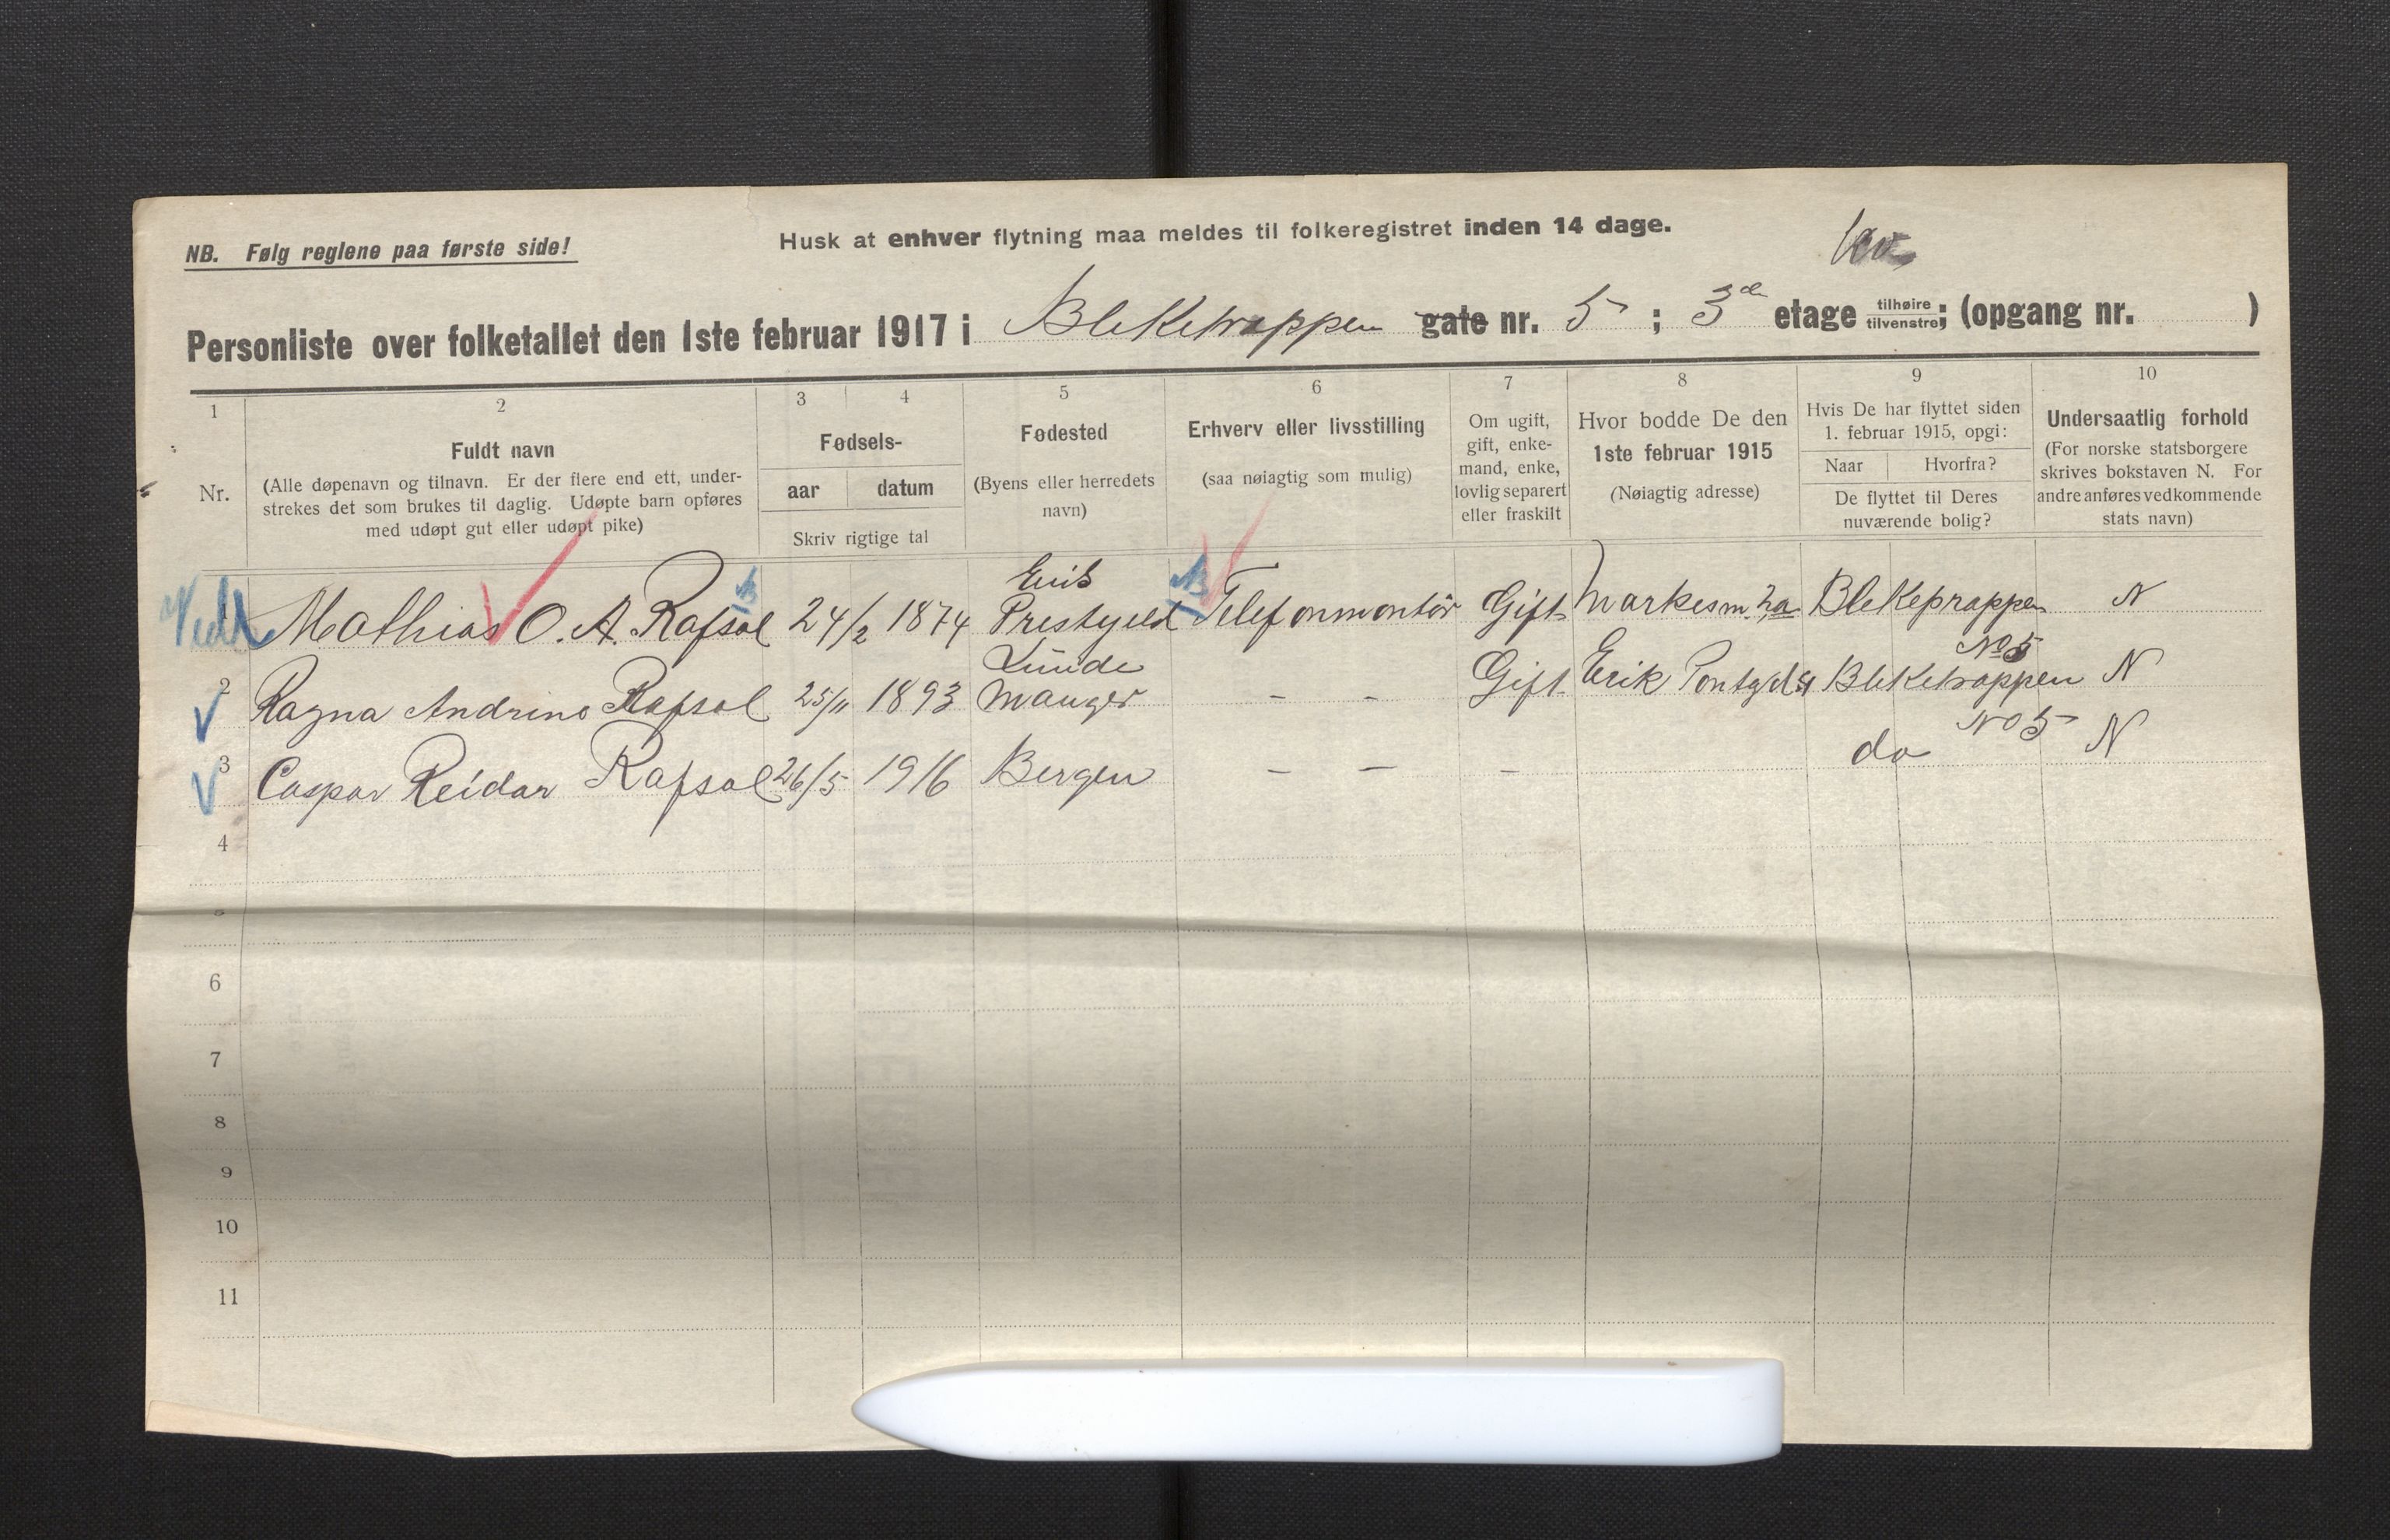 NB. Følg reglene paa første side!
Husk at enhver flytning maa meldes til folkeregistret inden 14 dage.
Personliste over folketallet den 1ste februar 1917 i Bleketrappen gate nr. 5 ; 3de etage tilhøire tilvenstre; (opgang nr. )
1 2 3 4 5 6 7 8 9 10
Nr.
Fuldt navn
(Alle døpenavn og tilnavn. Er der flere end ett, under-
strekes det som brukes til daglig. Udøpte barn opføres
med udøpt gut eller udøpt pike)
Fødsels-
aar datum
Skriv rigtige tal
Fødested
(Byens eller herredets
navn)
Erhverv eller livsstilling
(saa nøiagtig som mulig)
Om ugift,
gift, enke-
mand, enke,
lovlig separert
eller fraskilt
Hvor bodde De den
1ste februar 1915
(Nøiagtig adresse)
Hvis De har flyttet siden
1. februar 1915, opgi:
Naar Hvorfra?
De flyttet til Deres
nuværende bolig?
Undersaatlig forhold
(For norske statsborgere
skrives bokstaven N. For
andre anføres vedkommende
stats navn)
Mathias O. A. Rafsal 24/2 1874 Prestegeld Telefonmontör Gift Markesm. 2a Bleketrappen N
No 5
Lunde
2 Ragna Andrine Rafsal 25/11 1893 Manger - - Gift Erik Bleketrappen N
No 5
3 Caspar Reidar Rafsal 26/5 1916 Bergen - - - do N
4
5
6
7
8
9
10
11